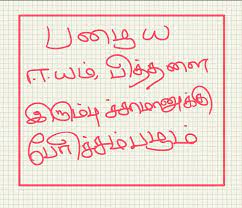 பழைய
ஈயம், பித்தளை
இரும்பு சாமானுக்கு
பேரிச்சம்பழம்